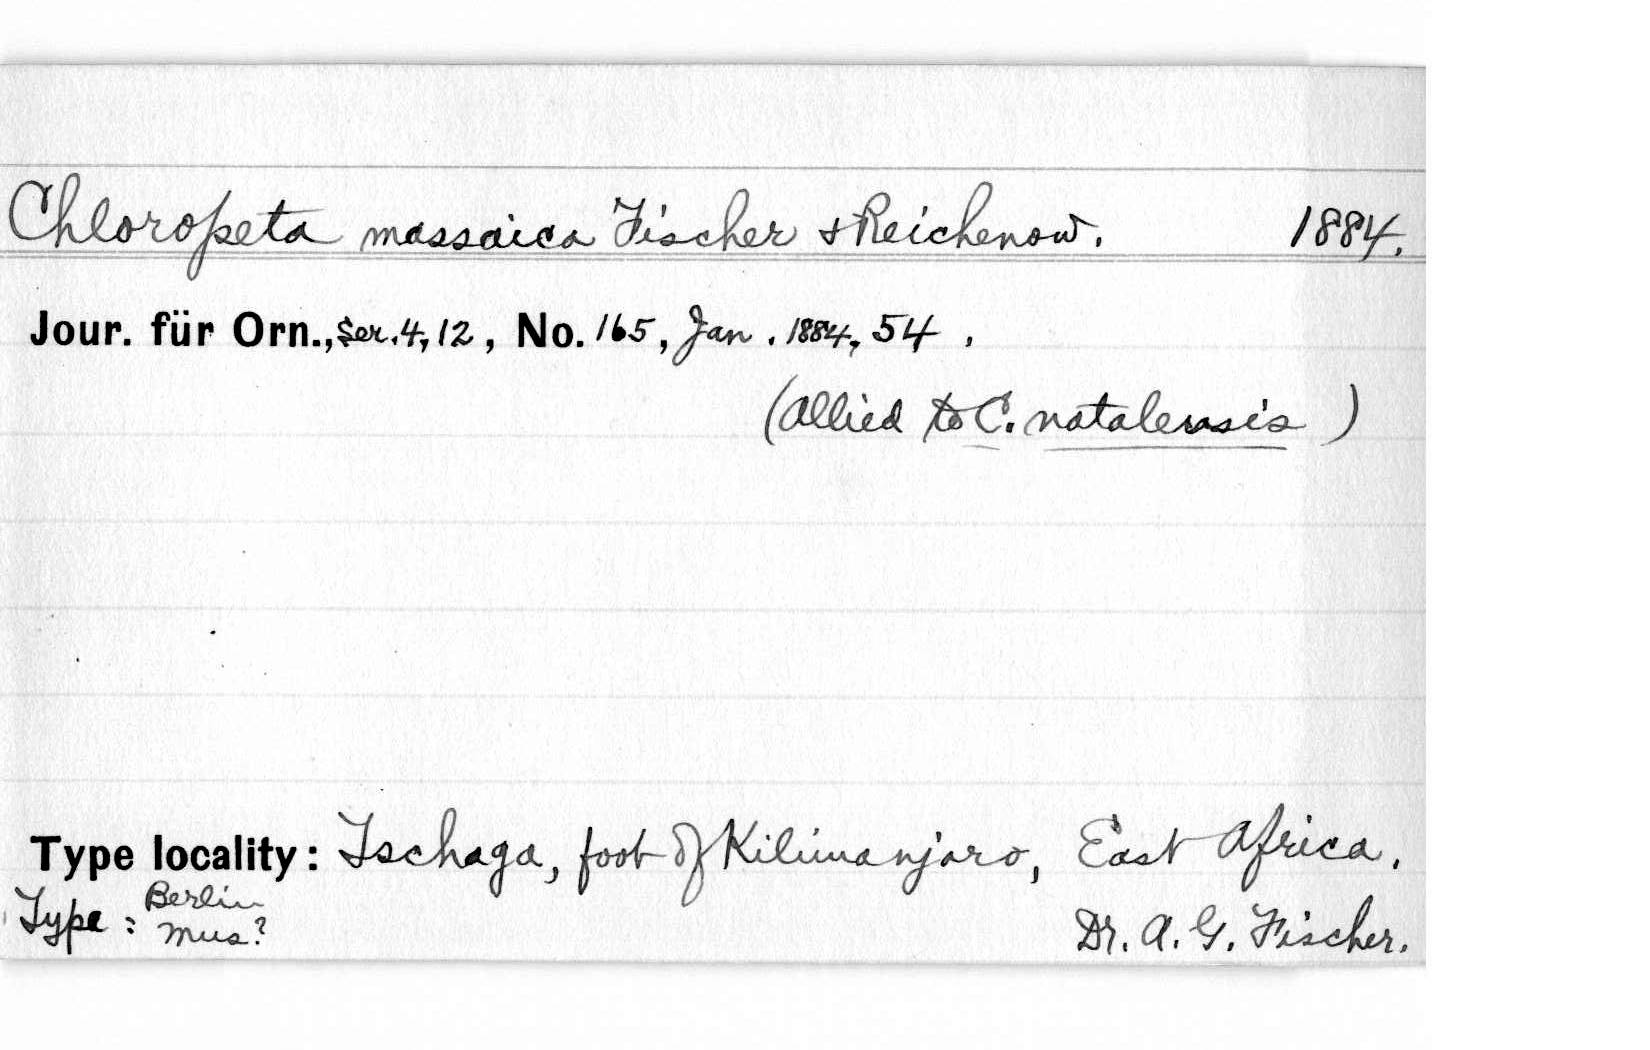 Chloropeta massaica Fischer & Reichenow. 1884.
Jour. für Orn., Ser. 4, 12, No. 165, Jan. 1884, 54.
(Allied to C. natalensis)
Type locality: Tschaga, foot of Kilimanjaro, East Africa.
Type: Berlin Mus? Dr. A. G. Fischer.